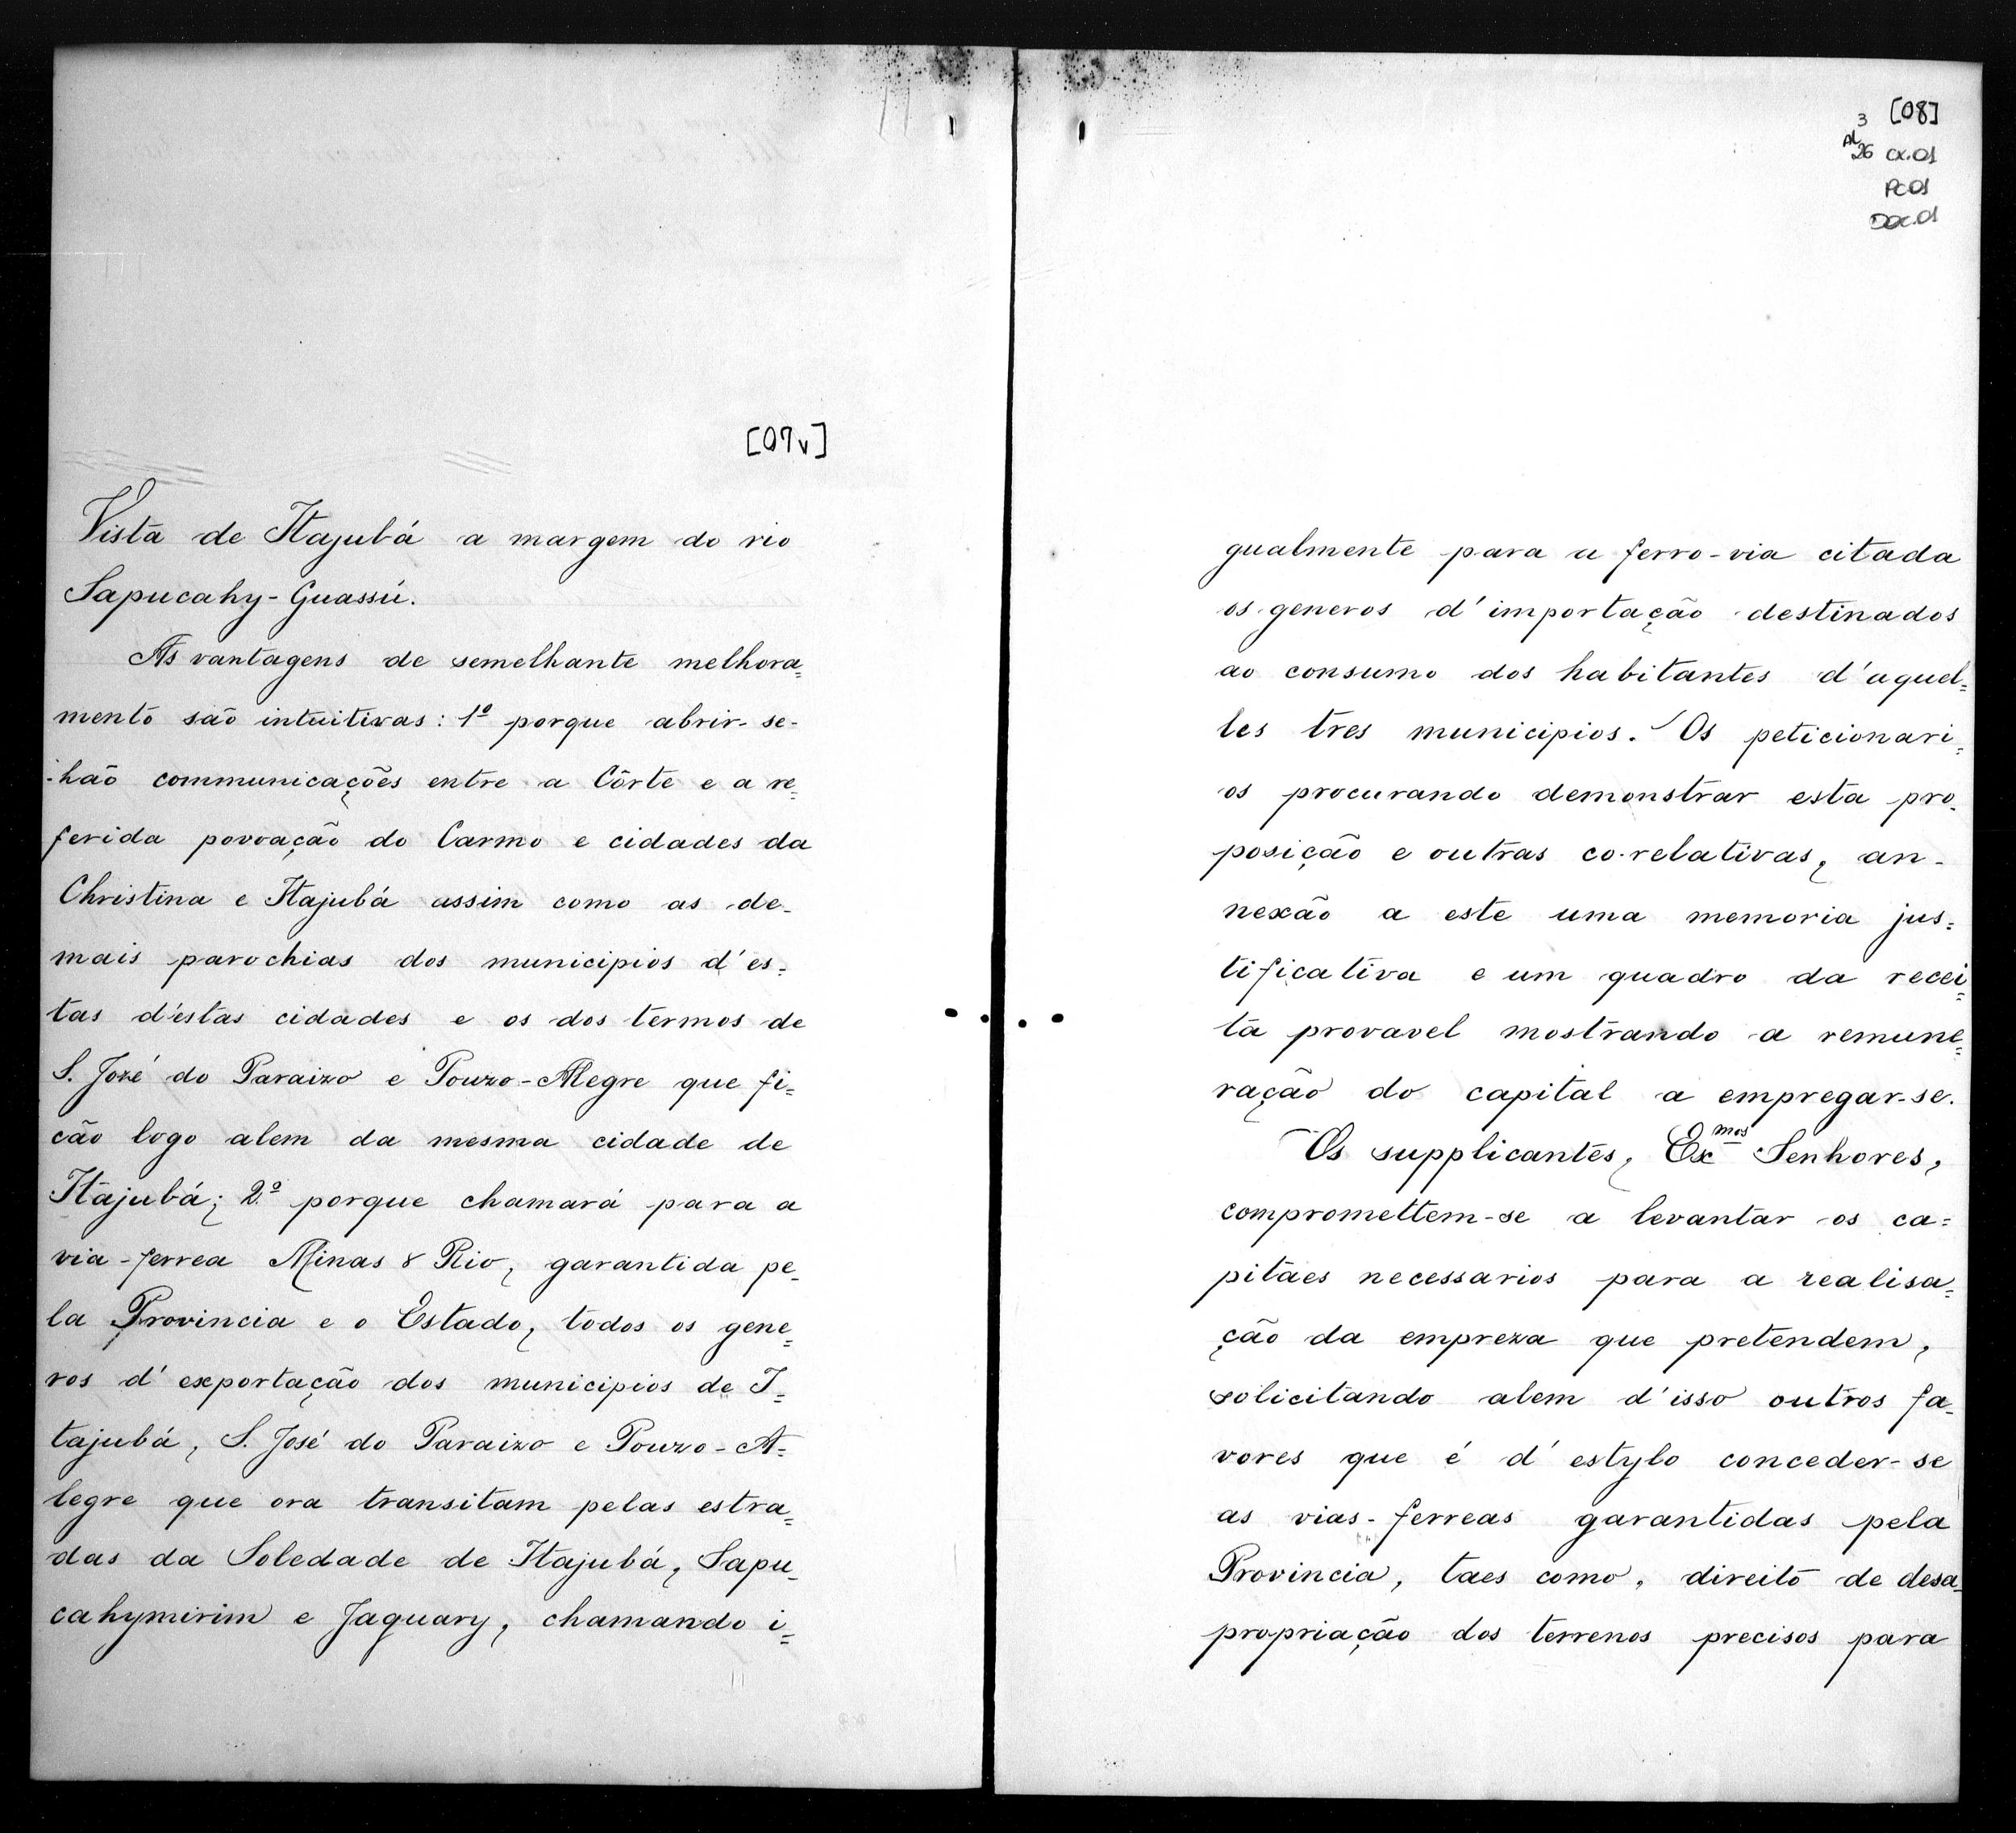 [07v]
Vista de Itajubá a margem do rio
Sapucahy-Guassú.
As vantagens de semelhante melhora=
mento são intuitivas: 1º porque abrir-se-
-hão communicações entre a Côrte e a re=
ferida povoação do Carmo e cidades da
Christina e Itajubá assim como as de-
mais parochias dos municipios d'es=
tas d'estas cidades e os dos termos de
S. José do Paraizo e Pouzo-Alegre que fi=
cão logo alem da mesma cidade de
Itajubá; 2º porque chamará para a
via-ferrea Minas & Rio, garantida pe-
la Provincia e o Estado, todos os gene=
ros d'exportação dos municipios de I=
tajubá, S. José do Paraizo e Pouzo-A=
legre que ora transitam pelas estra=
das da Soledade de Itajubá, Sapu-
cahymirim e Jaguary, chamando i=
[08]
3
Al
26 CX.01
PC01
DOC.01
gualmente para a ferro-via citada
os generos d'importação destinados
ao consumo dos habitantes d'aquel=
les tres municipios. Os peticionari=
os procurando demonstrar esta pro-
posição e outras co-relativas, an-
nexão a este uma memoria jus=
tificativa e um quadro da recei=
ta provavel mostrando a remune=
ração do capital a empregar-se.
Os supplicantes, Exmos Senhores,
compromettem-se a levantar os ca=
pitaes necessarios para a realisa=
ção da empreza que pretendem,
solicitando alem d'isso outros fa-
vores que é d'estylo conceder-se
as vias-ferreas garantidas pela
Provincia, taes como, direito de desa-
propriação dos terrenos precisos para